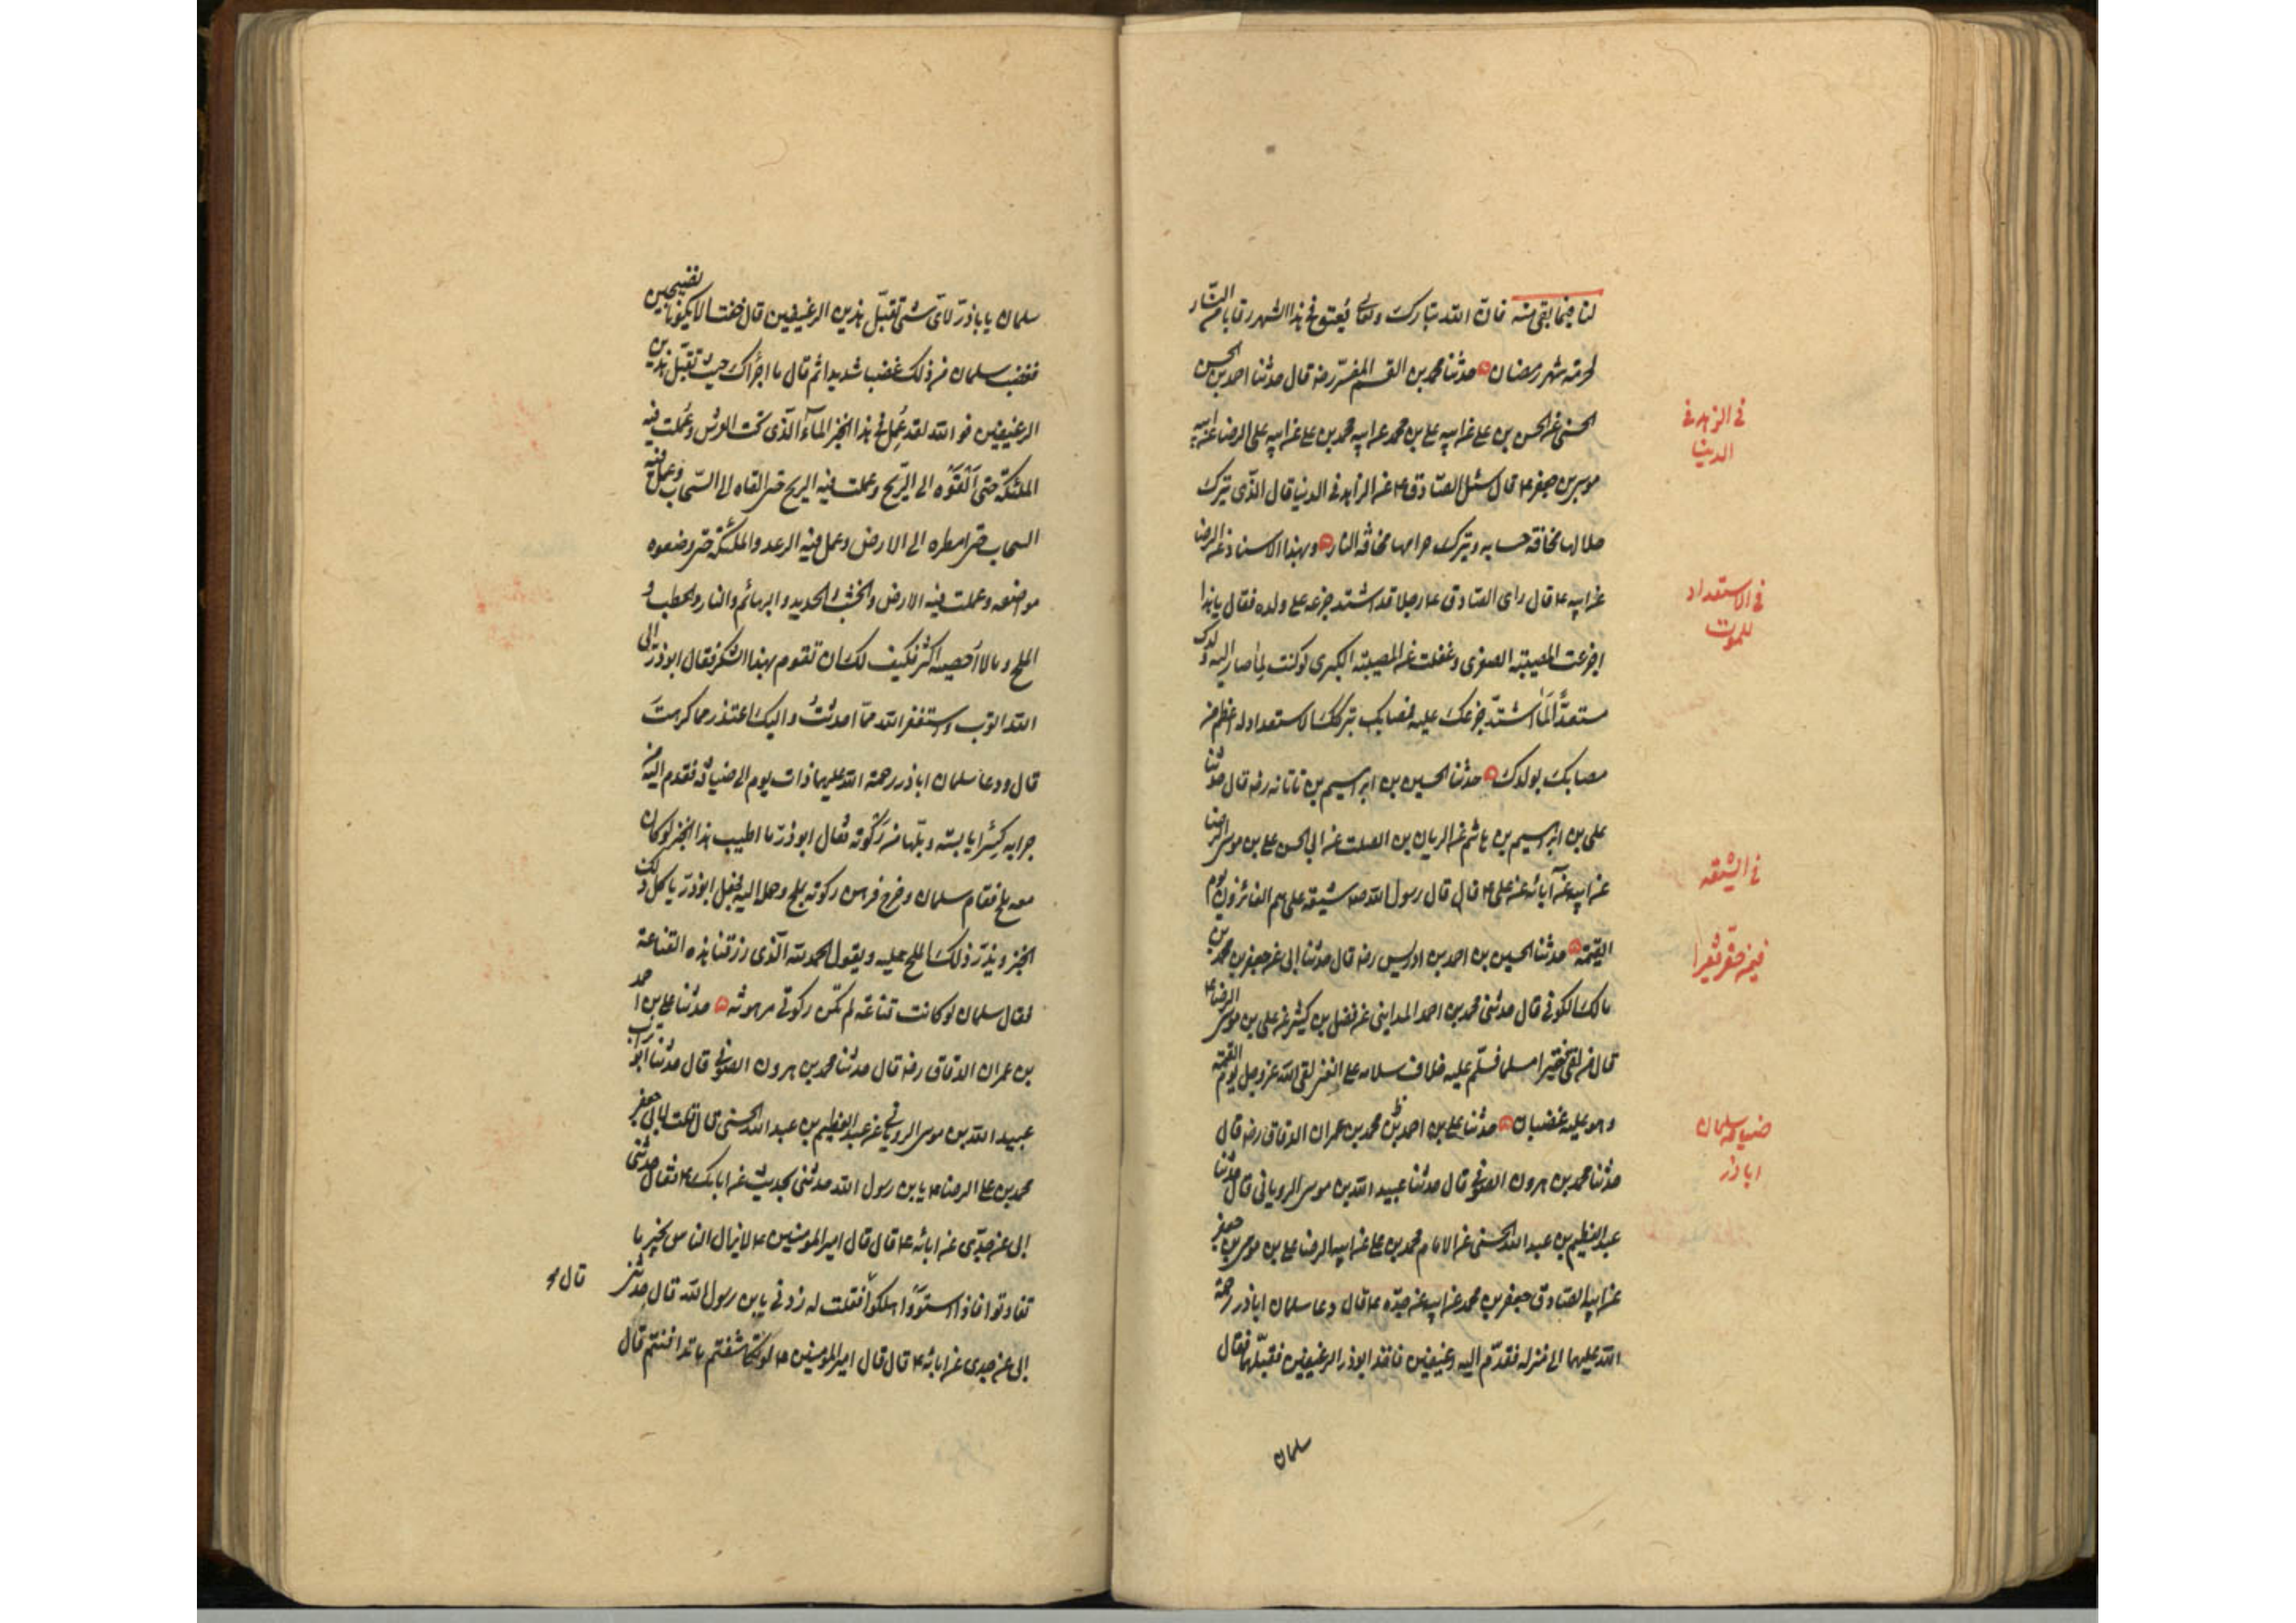 لنا فيما بقى منه فان الله تبارك وتعالى يُعتق فى هذا الشهر رقابا من النار
لحرمة شهر رمضان حدثنا محمد بن القسم المفسّر رضه قال حدثنا احمد بن الحسن
الحسنى عن الحسن بن على عن ابيه على بن محمد عن ابيه محمد بن على عن ابيه على الرضا عن ابيه
موسى بن جعفر ع قال سئل الصّادق ع عن الزاهد فى الدنيا قال الذى يترك
حلالها مخافة حسابه ويترك حرامها مخافة النار وبهذا الاسناد عن الرضا
عن ابيه ع قال راى الصّادق ع رجلا قد اشتد جزعه على ولده فقال يا هذا
اجزعت للمصيبة الصغرى وغفلت عن المصيبة الكبرى لو كنت لما صار اليه ولدك
مستعدًّا لَمَا اشتدّ جزعك عليه فمصابك بتركك الاستعداد له اعظم من
مصابك بولدك حدثنا الحسين بن ابرهيم بن تاتانه رضه قال حدثنا
على بن ابرهيم بن هاشم عن الريان بن الصلت عن ابى الحسن على بن موسى الرضا
عن ابيه عن آبائه عن على ع قال قال رسول الله صع شيعة على هم الفائزون يوم
القيمة حدثنا الحسين بن احمد بن ادريس رضه قال حدثنا ابى عن جعفر بن محمد بن
مالك الكوفى قال حدثنى محمد بن احمد المداينى عن فضل بن كثير عن على بن موسى الرضا ع
قال من لقى فقيرا مسلما فسلّم عليه خلاف سلامه على الغنى لقى الله عز وجل يوم القيمة
وهو عليه غضبان حدثنا على بن احمد بن محمد بن عمران الدقاق رضه قال
حدثنا محمد بن هرون الصوفى قال حدثنا عبيد الله بن موسى الرويانى قال حدثنا
عبد العظيم بن عبد الله الحسنى عن الامام محمد بن على عن ابيه الرضا على بن موسى بن جعفر
عن ابيه الصّادق جعفر بن محمد عن ابيه عن جدّه ع قال دعا سلمان اباذر رحمة
الله عليهما الى منزله فقدّم اليه رغيفين فاخذ ابوذر الرغيفين فقبلهما فقال
سلمان
فى الزهد فى
الدنيا
فى الاستعداد
للموت
فى الشيعة
فيمن حقّر فقيرا
ضيافة سلمان
اباذر
سلمان يا باذرّ لاىّ شئ تقبّل هذين الرغيفين قال خفت الا يكونا نضيجين
فغضب سلمان من ذلك غضبا شديدا ثم قال ما اجرأك حيث تقبّل هذين
الرغيفين فو الله لقد عُمِل فى هذا الخبز الماءُ الذى تحت العرش وعملت فيه
الملئكة حتى اَلْقَوْه الى الرّيح وعملت فيه الريح حتى القاه الى السّحاب وعمل فيه
السحاب حتى امطره الى الارض وعمل فيه الرعد والملئكة حتى وضعوه
مواضعه وعملت فيه الارض والخشب والحديد والبهائم والنار والحطب و
الملح وما لا اُحصيه اكثر فكيف لك ان تقوم بهذا الشكر فقال ابوذرّ الى
الله اتوب واستغفر الله ممّا احدثتُ واليك اعتذر مما كرهتَ
قال ودعا سلمان اباذر رحمة الله عليهما ذات يوم الى ضيافة فقدم اليه من
جرابه كِسَرًا يابسة وبلّها من رَكْوته فقال ابوذرّ ما اطيب هذا الخبز لو كان
معه ملح فقام سلمان وخرج فرهن ركوته بملح وحمله اليه فجعل ابوذرّ ياكل ذلك
الخبز ويذرّ ذلك الملح عليه ويقول الحمد لله الّذى رزقنا هذه القناعة
فقال سلمان لو كانت قناعة لم تكن ركوتى مرهونة حدثنا على بن احمد
بن عمران الدقاق رضه قال حدثنا محمد بن هرون الصوفى قال حدثنا ابو تراب
عبيد الله بن موسى الرويانى عن عبد العظيم بن عبد الله الحسنى قال قلت لابى جعفر
محمد بن على الرضا ع يابن رسول الله حدثنى بحديث عن ابائك ع فقال حدثنى
ابى عن جدّى عن ابائه ع قال قال امير المومنين ع لا يزال الناس بخير ما
تفاوتوا فاذا استوَوْا هلكوا فقلت له زدنى يابن رسول الله قال حدثنى
ابى عن جدى عن ابائه ع قال قال امير المومنين ع لو تكاشفتم ما تدافنتم قال